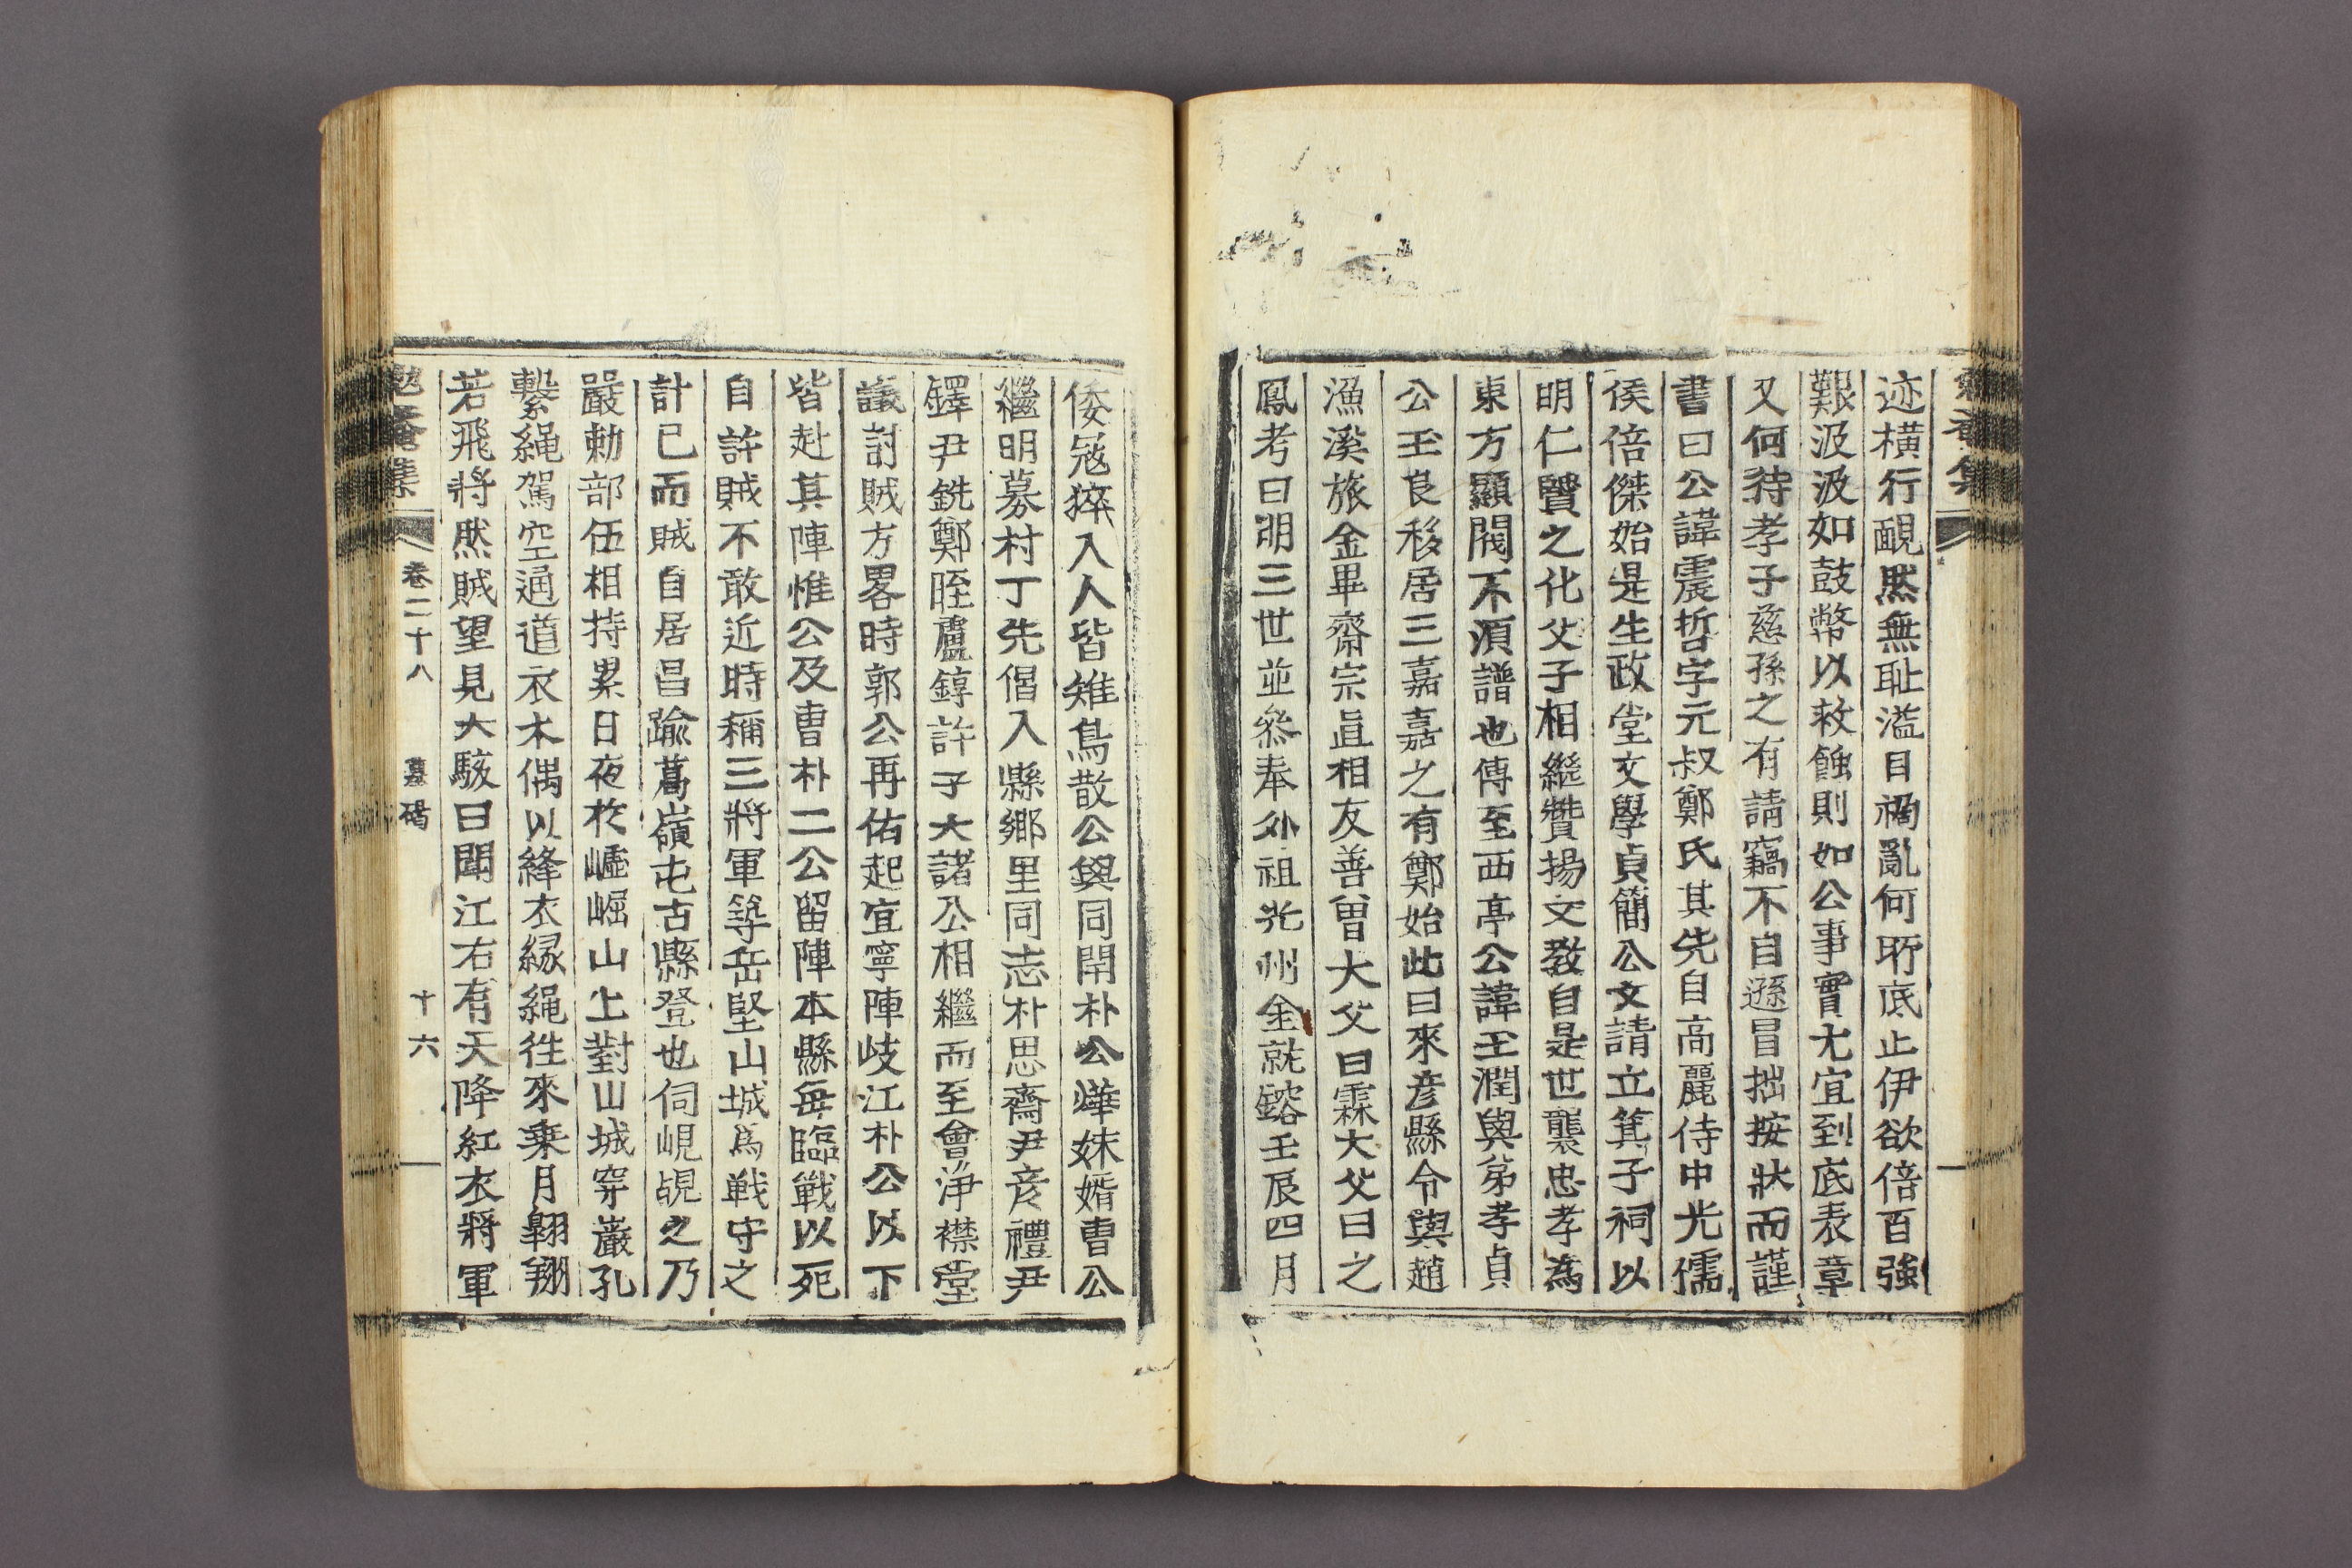 迹橫行靦然無耻溢目禍亂何所底止伊欲倍百強
艱汲汲如鼓幣以救蝕則如公事實尤宜到底表章
又何待孝子慈孫之有請竊不自遜冒拙按狀而謹
書曰公諱震哲字元叔鄭氏其先自高麗侍中光儒
侯倍傑始是生政堂文學貞簡公文請立箕子祠以
明仁賢之化父子相繼贊揚文教自是世襲忠孝爲
東方顯閥不須譜也傳至西亭公諱玉潤與弟孝貞
公玉良移居三嘉嘉之有鄭始此曰來彦縣令與趙
漁溪旅金畢齋宗直相友善曾大父曰霖大父曰之
鳳考曰明三世並叅奉外祖光州金就鎔壬辰四月
倭冦猝入人皆雉鳥散公與同閈朴公燁妹婿曺公
繼明募村丁先倡入縣鄉里同志朴思齋尹彦禮尹
鐸尹銑鄭晊盧錞許子大諸公相繼而至會淨襟堂
議討賊方畧時郭公再佑起宜寧陣岐江朴公以下
皆赴其陣惟公及曺朴二公留陣本縣每臨戰以死
自許賊不敢近時稱三將軍築岳堅山城爲戰守之
計已而賊自居昌踰葛嶺屯古縣登也伺峴覘之乃
嚴勅部伍相持累日夜於嶇崛山上對山城穿巖孔
繫繩駕空通道衣木偶以絳衣緣繩徃來乘月翱翔
若飛將然賊望見大駭曰聞江右有天降紅衣將軍
勉菴集 卷二十八 墓碣 十六